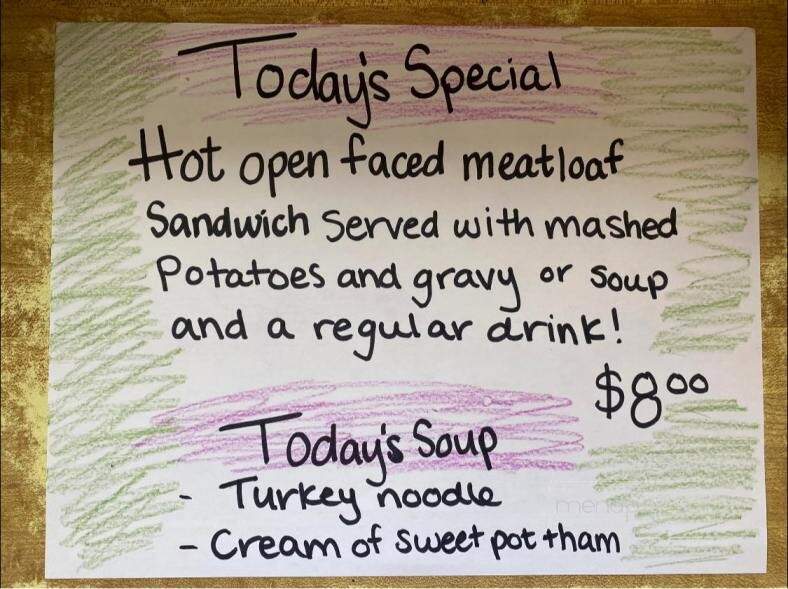 Today's Special
Hot open faced meatloaf
Sandwich Served with mashed
Potatoes and gravy or soup
and a regular drink!
$8.00
Today's Soup
- Turkey noodle
- Cream of sweet pot +ham